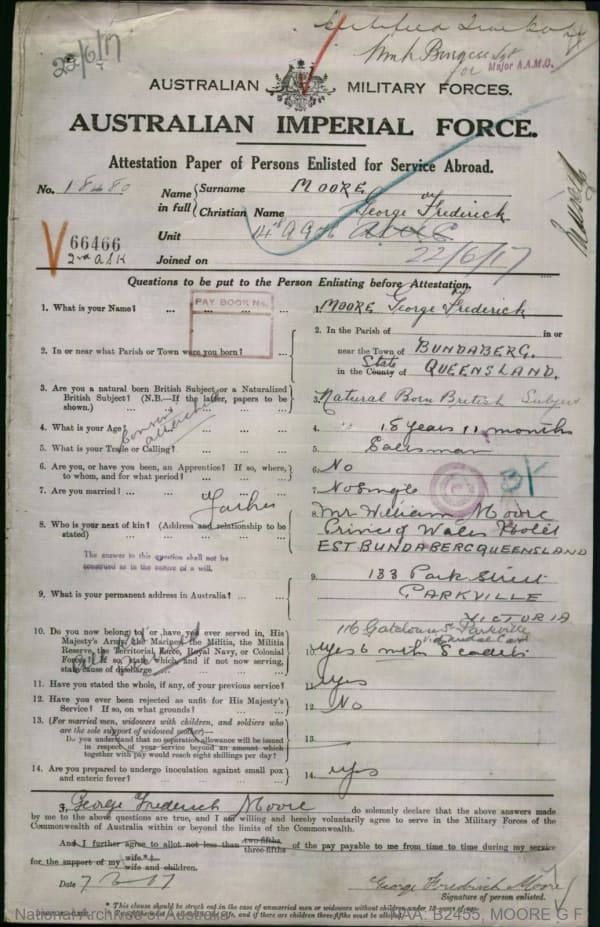 Certified True Copy
22/6/17
Wm Burgess Sgt
for Major A.A.M.C.
AUSTRALIAN MILITARY FORCES.
AUSTRALIAN IMPERIAL FORCE.
Attestation Paper of Persons Enlisted for Service Abroad.
No. 18480
Name in full { Surname MOORE
Christian Name George Frederick
66466
Unit
Joined on 22/6/17
Questions to be put to the Person Enlisting before Attestation.
PAY BOOK No.
1. What is your Name? ... ... ... 1. MOORE George Frederick
2. In or near what Parish or Town were you born? ... 2. In the Parish of in or
near the Town of BUNDABERG.
State
in the County of QUEENSLAND.
3. Are you a natural born British Subject or a Naturalized
British Subject? (N.B.—If the latter, papers to be
shown.) ... 3. Natural Born British Subject
4. What is your Age? ... 4. 18 years 11 months
5. What is your Trade or Calling? ... 5. Salesman
6. Are you, or have you been, an Apprentice? If so, where,
to whom, and for what period? ... 6. No
7. Are you married? ... 7. No Single
3/-
Father
8. Who is your next of kin? (Address and relationship to be
stated) 8. Mr William Moore
Prince of Wales Hotel
EST BUNDABERG QUEENSLAND
The answer to this question shall not be
construed as in the nature of a will.
9. What is your permanent address in Australia? ... 9. 133 Park Street
PARKVILLE
VICTORIA
116 Parkville
10. Do you now belong to, or have you ever served in, His
Majesty's Army, the Marines, the Militia, the Militia
Reserve, the Territorial Force, Royal Navy, or Colonial
Forces? If so, state which, and if not now serving,
state cause of discharge ... 10. Yes 6 mths Scadets
11. Have you stated the whole, if any, of your previous service? 11. Yes
12. Have you ever been rejected as unfit for His Majesty's
Service? If so, on what grounds? ... 12. No
13. (For married men, widowers with children, and soldiers who
are the sole support of widowed mother)—
Do you understand that no separation allowance will be issued
in respect of your service beyond an amount which
together with pay would reach eight shillings per day? 13.
14. Are you prepared to undergo inoculation against small pox
and enteric fever? ... 14. Yes
I, George Frederick Moore do solemnly declare that the above answers made
by me to the above questions are true, and I am willing and hereby voluntarily agree to serve in the Military Forces of the
Commonwealth of Australia within or beyond the limits of the Commonwealth.
And I further agree to allot not less than two-fifths three-fifths of the pay payable to me from time to time during my service
for the support of my wife*† wife and children.
Date 7 17 George Fredrick Moore
Signature of person enlisted.
* This clause should be struck out in the case of unmarried men or widowers without children under
National Archives of Australia NAA: B2455, MOORE G F